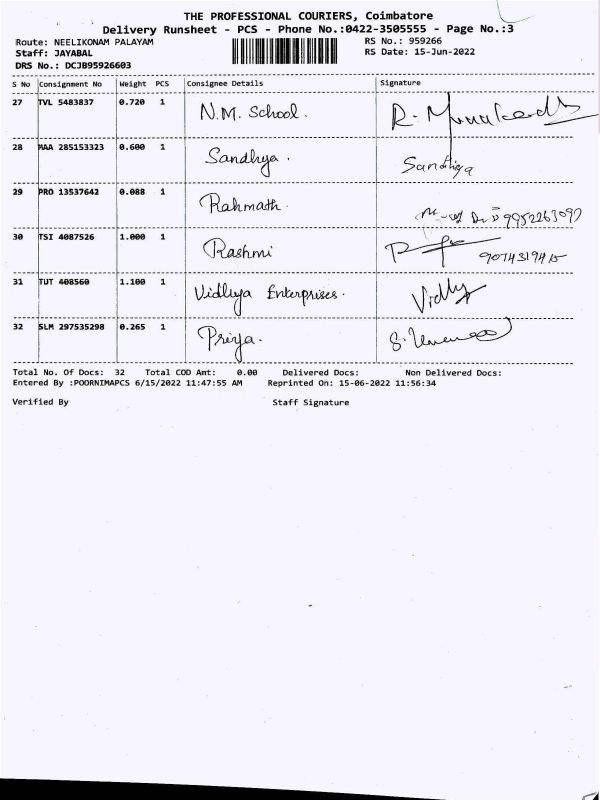 THE PROFESSIONAL COURIERS, Coimbatore
Delivery Runsheet - PCS - Phone No.:0422-3505555 - Page No.:3
Route: NEELIKONAM PALAYAM RS No.: 959266
Staff: JAYABAL RS Date: 15-Jun-2022
DRS No.: DCJB95926603
S No Consignment No Weight PCS Consignee Details Signature
27 TVL 5483837 0.720 1 N.M. School. R.
28 MAA 285153323 0.600 1 Sandhya. Sandhiya
29 PRO 13537642 0.088 1 Rahmath. 9952263097
30 TSI 4087526 1.000 1 Rashmi
31 TUT 408560 1.100 1 Vidhya Enterprises. Vidhy
32 SLM 297535298 0.265 1 Priya. S.
Total No. Of Docs: 32 Total COD Amt: 0.00 Delivered Docs: Non Delivered Docs:
Entered By :POORNIMAPCS 6/15/2022 11:47:55 AM Reprinted On: 15-06-2022 11:56:34
Verified By Staff Signature